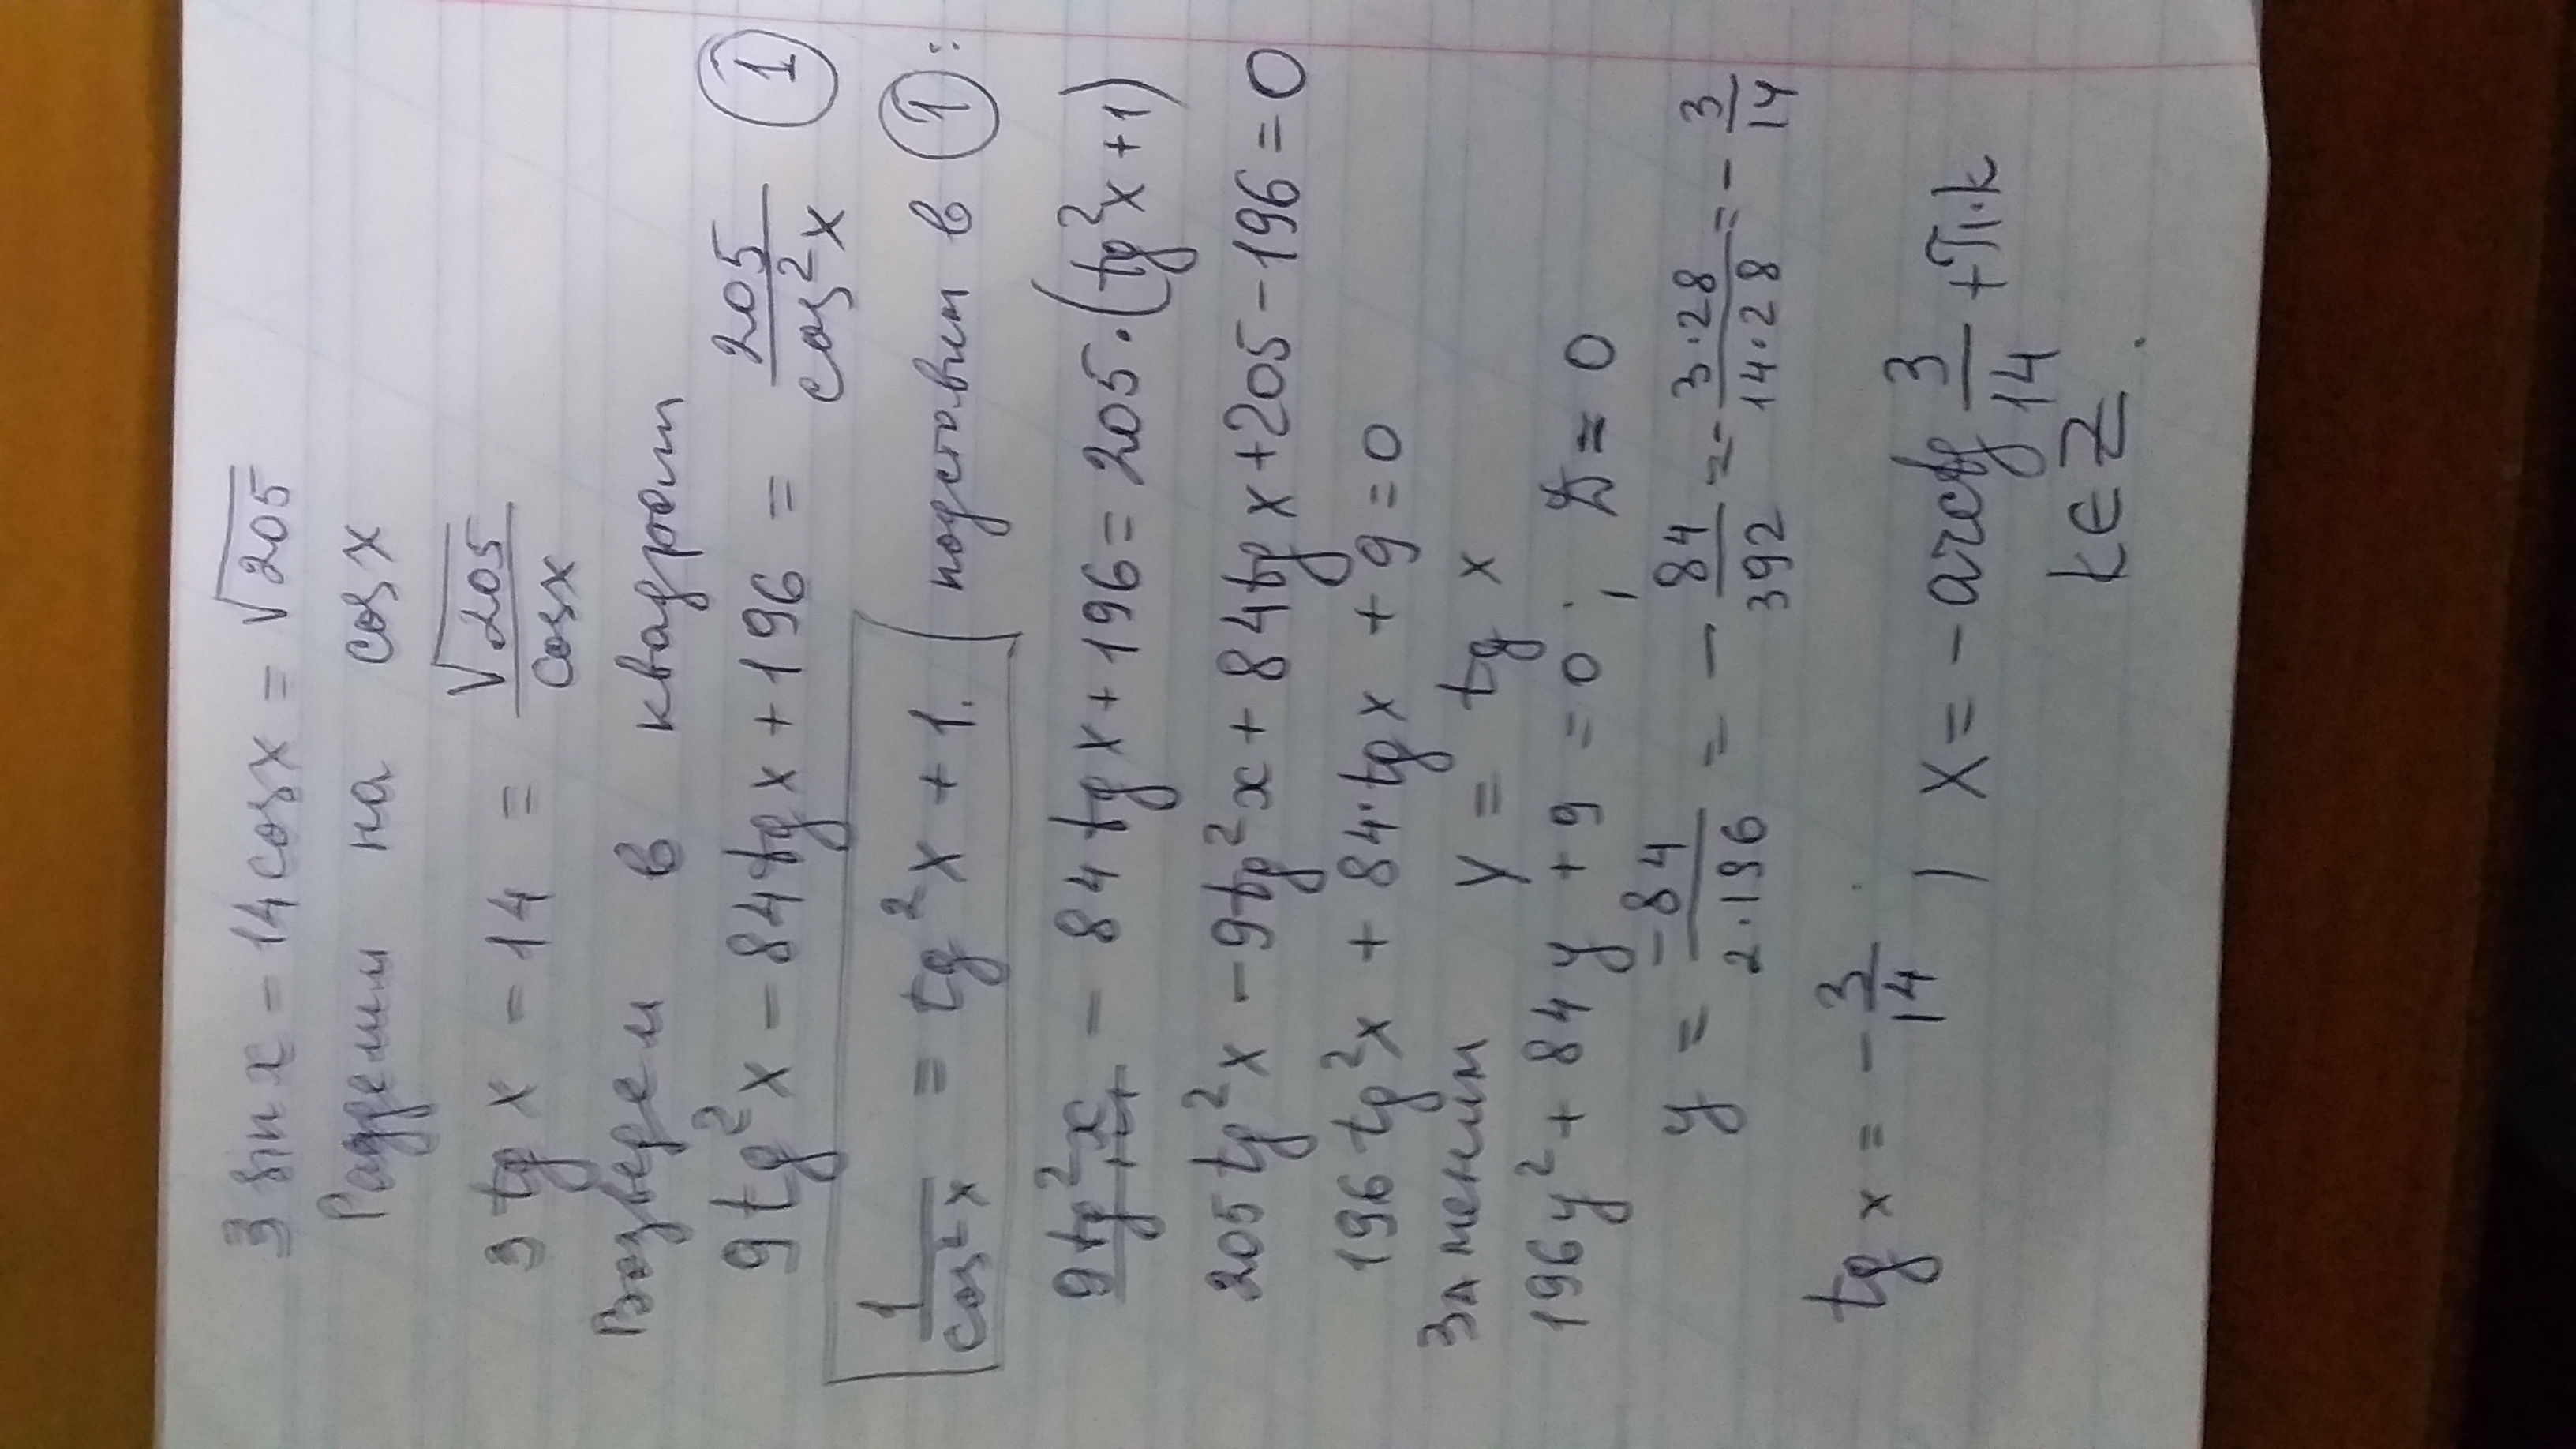 3 sin x - 14 cos x = √205
Разделим на cos x
3 tg x - 14 = √205 / cos x
Возведем в квадрат
9 tg²x - 84 tg x + 196 = 205 / cos²x ①
1 / cos²x = tg²x + 1. подставим в ①:
9 tg²x - 84 tg x + 196 = 205·(tg²x + 1)
205 tg²x - 9 tg²x + 84 tg x + 205 - 196 = 0
196 tg²x + 84·tg x + 9 = 0
Заменим y = tg x
196y² + 84y + 9 = 0; D = 0
y = -84 / 2·196 = - 84 / 392 = - 3·28 / 14·28 = - 3 / 14
tg x = - 3 / 14, x = - arctg 3 / 14 + π·k
k ∈ Z.